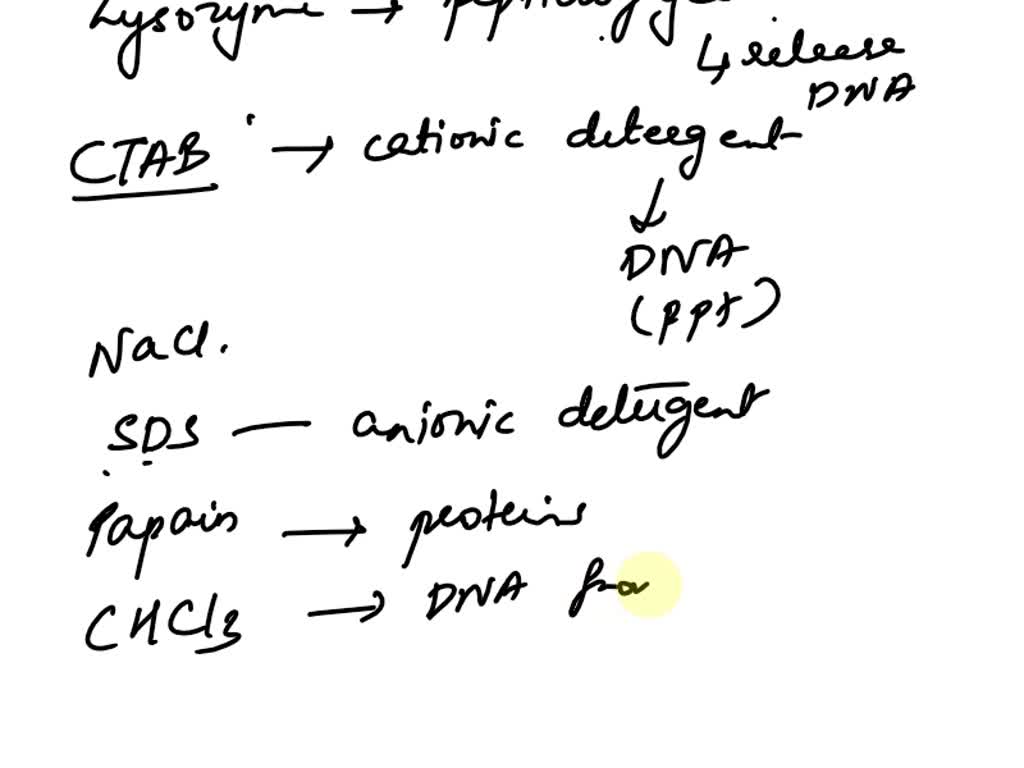 Lysozyme →
↳ release
DNA
CTAB → cationic detergent
↓
DNA
(ppt)
NaCl.
SDS — anionic detergent
Papain → proteins
CHCl3 → DNA from